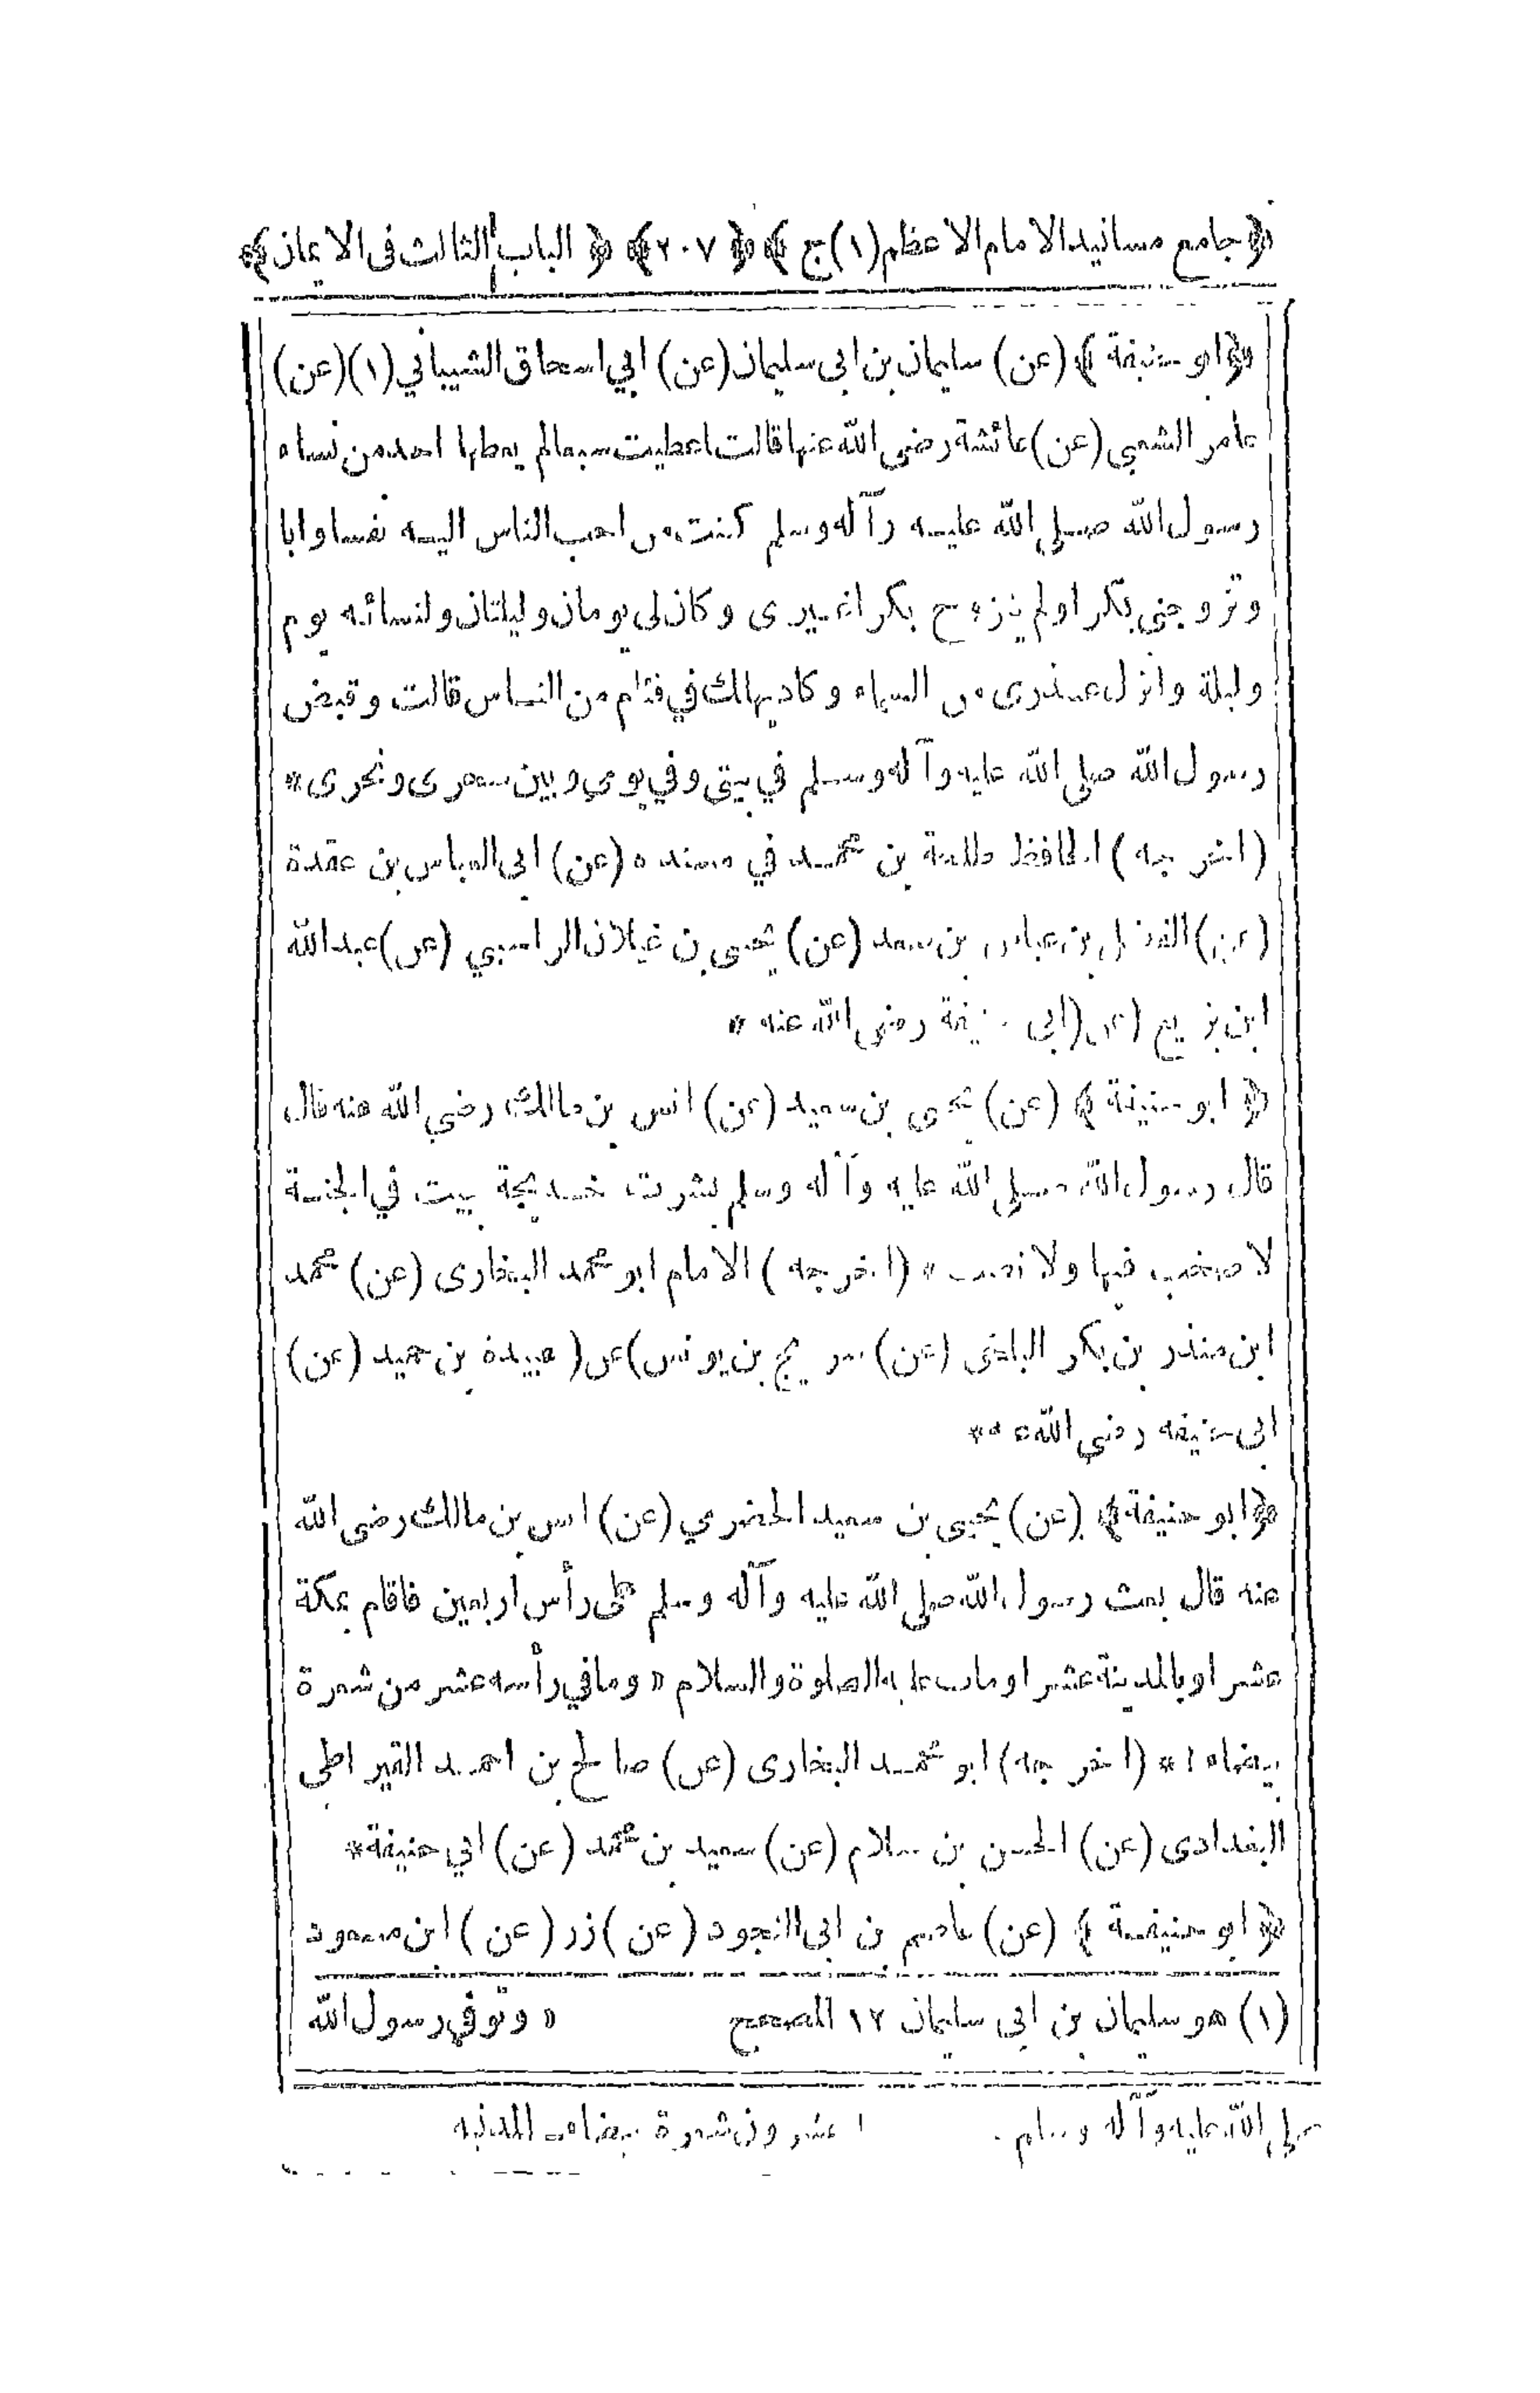 ﴿جامع مسانيد الامام الاعظم (١) ج﴾ ﴿٢٠٧﴾ ﴿الباب الثالث فى الايمان﴾
﴿ابو حنيفة﴾ (عن) سليمان بن ابى سليمان (عن) ابي اسحاق الشيباني (١) (عن)
عامر الشعبي (عن) عائشة رضى الله عنها قالت اعطيت سبعا لم يعطها احد من نساء
رسول الله صلى الله عليه وآله وسلم كنت من احب الناس اليه نفسا وابا
وتزوجنى بكرا ولم يتزوج بكرا غيرى وكان لى يومان وليلتان ولنسائه يوم
وليلة وانزل عذرى من السماء وكاد يهلك في فئام من الناس قالت وقبض
رسول الله صلى الله عليه وآله وسلم في بيتى وفي يومي وبين سحرى ونحرى *
(اخرجه) الحافظ طلحة بن محمد في مسنده (عن) ابى العباس بن عقدة
(عن) الفضل بن عباس بن سعد (عن) يحيى بن غيلان الراسبي (عن) عبد الله
ابن بزيع (عن) ابى حنيفة رضى الله عنه *
﴿ابو حنيفة﴾ (عن) يحيى بن سعيد (عن) انس بن مالك رضي الله عنه قال
قال رسول الله صلى الله عليه وآله وسلم بشرت خديجة ببيت في الجنة
لا صخب فيها ولا نصب * (اخرجه) الامام ابو محمد البخارى (عن) محمد
ابن منذر بن بكر البلخى (عن) سريج بن يونس) عن (عبيدة بن حميد (عن)
ابى حنيفه رضي الله عنه *
﴿ابو حنيفة﴾ (عن) يحيى بن سعيد الحضرمي (عن) انس بن مالك رضى الله
عنه قال بعث رسول الله صلى الله عليه وآله وسلم على رأس اربعين فاقام بمكة
عشرا وبالمدينة عشرا ومات عليه الصلوة والسلام * وما في رأسه عشر من شعرة
بيضاء ١ * (اخرجه) ابو محمد البخارى (عن) صالح بن احمد القيراطى
البغدادى (عن) الحسن بن سلام (عن) سعيد بن محمد (عن) ابي حنيفة *
﴿ابو حنيفة﴾ (عن) عاصم بن ابى النجود (عن) زر (عن) ابن مسعود
(١) هو سليمان بن ابى سليمان ١٢ المصحح * وتوفى رسول الله
صلى الله عليه وآله وسلم ١ عشرون شعرة بيضاء